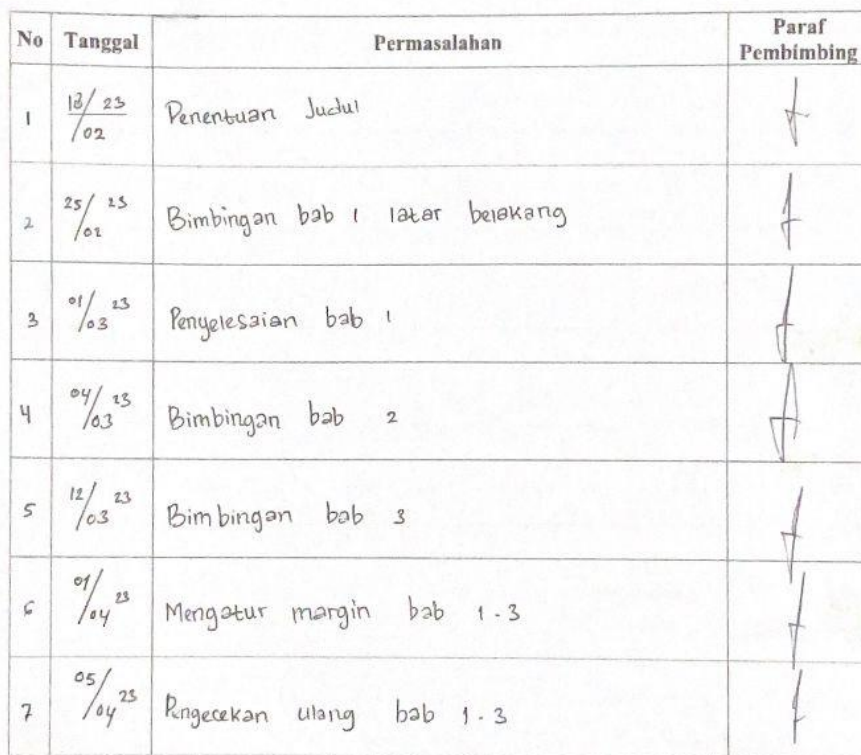 No Tanggal Permasalahan Paraf Pembimbing
1 18/02 23 Penentuan Judul
2 25/02 23 Bimbingan bab 1 latar belakang
3 01/03 23 Penyelesaian bab 1
4 04/03 23 Bimbingan bab 2
5 12/03 23 Bimbingan bab 3
6 01/04 23 Mengatur margin bab 1-3
7 05/04 23 Pengecekan ulang bab 1-3